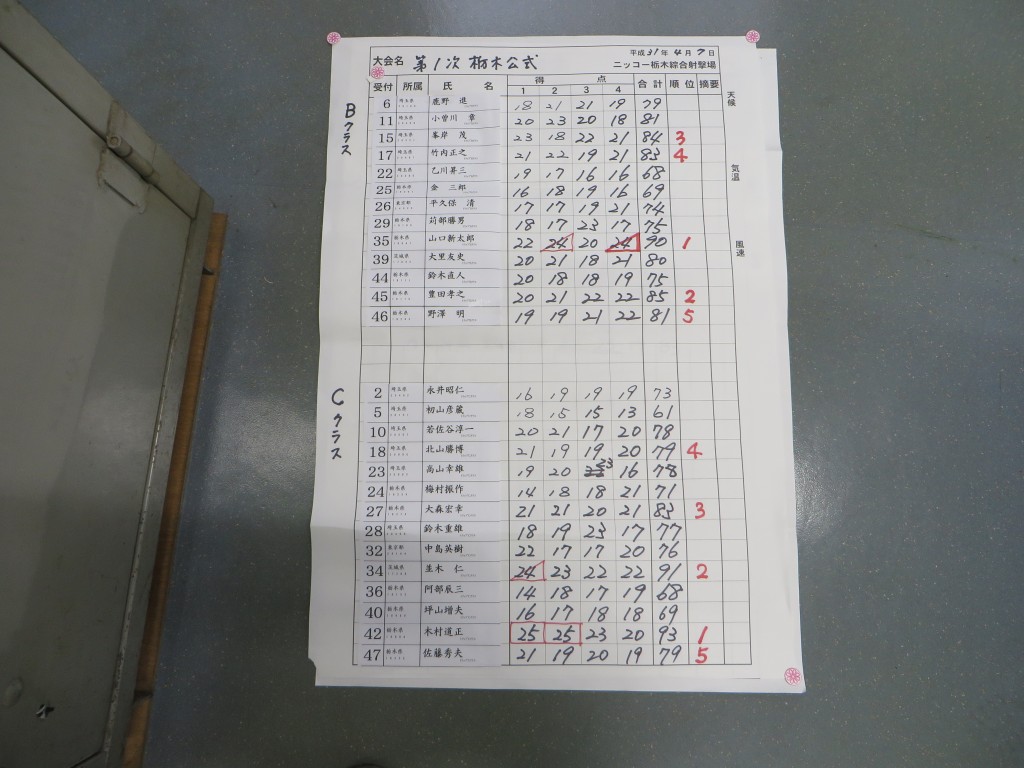 大会名 第1次 栃木公式 平成31年4月7日
ニッコー栃木綜合射撃場
受付 所属 氏 名 得 点 合計 順位 摘要
1 2 3 4
天候
気温
風速
Bクラス
6 埼玉県 鹿野 進 18 21 21 19 79
11 埼玉県 小曽川 章 20 23 20 18 81
15 埼玉県 峯岸 茂 23 18 22 21 84 3
17 埼玉県 竹内正之 21 22 19 21 83 4
22 埼玉県 乙川昇三 19 17 16 16 68
25 栃木県 金 三郎 16 18 19 16 69
26 東京都 平久保 清 17 17 19 21 74
29 栃木県 苅部勝男 18 17 23 17 75
35 栃木県 山口新太郎 22 24 20 24 90 1
39 茨城県 大里友史 20 21 18 21 80
44 栃木県 鈴木直人 20 18 18 19 75
45 栃木県 豊田孝之 20 21 22 22 85 2
46 栃木県 野澤 明 19 19 21 22 81 5
Cクラス
2 埼玉県 永井昭仁 16 19 19 19 73
5 埼玉県 初山彦蔵 18 15 15 13 61
10 埼玉県 若佐谷淳一 20 21 17 20 78
18 埼玉県 北山勝博 21 19 19 20 79 4
23 埼玉県 高山幸雄 19 20 23 16 78
24 栃木県 梅村振作 14 18 18 21 71
27 栃木県 大森宏幸 21 21 20 21 83 3
28 埼玉県 鈴木重雄 18 19 23 17 77
32 東京都 中島英樹 22 17 17 20 76
34 茨城県 並木 仁 24 23 22 22 91 2
36 栃木県 阿部辰三 14 18 17 19 68
40 栃木県 坪山増夫 16 17 18 18 69
42 栃木県 木村道正 25 25 23 20 93 1
47 栃木県 佐藤秀夫 21 19 20 19 79 5